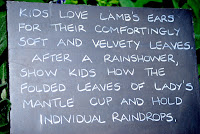 KIDS LOVE LAMB'S EARS
FOR THEIR COMFORTINGLY
SOFT AND VELVETY LEAVES.
AFTER A RAINSHOWER,
SHOW KIDS HOW THE
FOLDED LEAVES OF LADY'S
MANTLE CUP AND HOLD
INDIVIDUAL RAINDROPS.